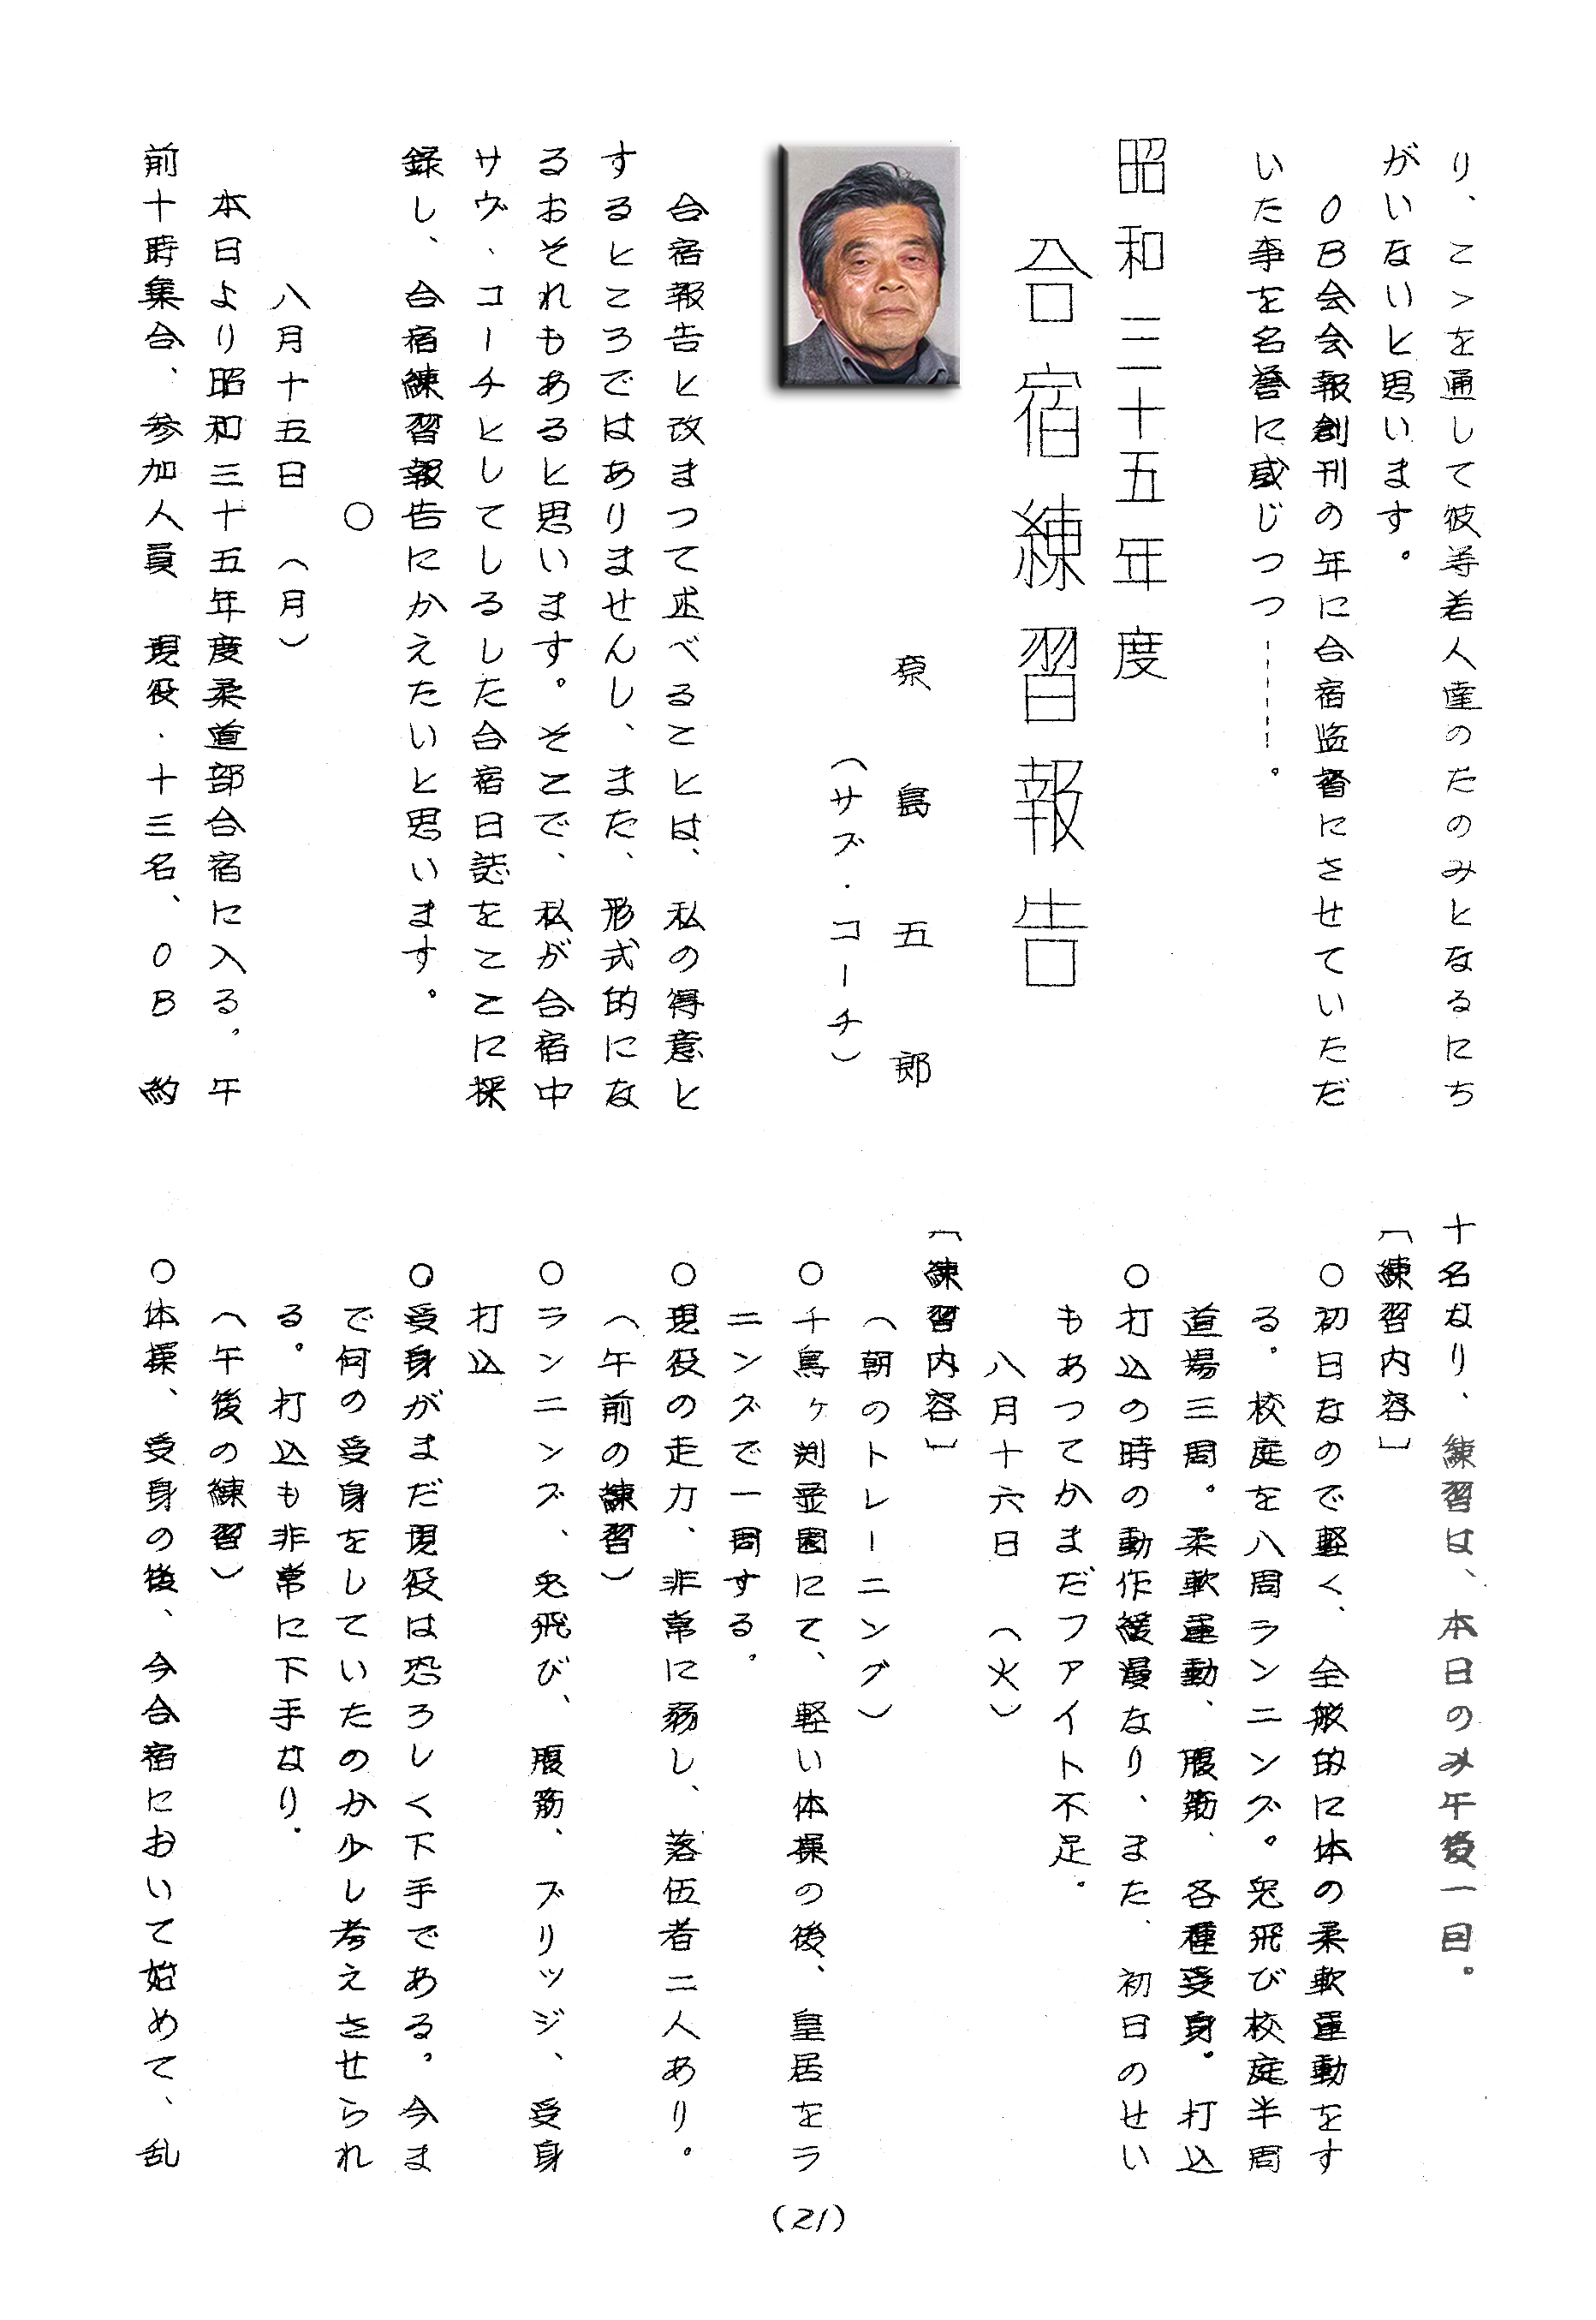 り、こゝを通して彼等若人達のたのみとなるにち
がいないと思います。
OB会会報創刊の年に合宿監督にさせていただ
いた事を名誉に感じつつ‥‥‥。
昭和三十五年度
合宿練習報告
原島五郎
（サブ・コーチ）
合宿報告と改まつて述べることは、私の得意と
するところではありませんし、また、形式的にな
るおそれもあると思います。そこで、私が合宿中
サヴ・コーチとしてしるした合宿日誌をここに採
録し、合宿練習報告にかえたいと思います。
○
八月十五日（月）
本日より昭和三十五年度柔道部合宿に入る。午
前十時集合、参加人員 現役・十三名、OB 約
十名なり、練習は、本日のみ午後一回。
〔練習内容〕
○初日なので軽く、全般的に体の柔軟運動をす
る。校庭を八周ランニング。兎飛び校庭半周
道場三周。柔軟運動、腹筋、各種受身。打込
○打込の時の動作緩慢なり、また、初日のせい
もあつてかまだファイト不足。
八月十六日（火）
〔練習内容〕
（朝のトレーニング）
○千鳥ヶ渕並園にて、軽い体操の後、皇居をラ
ニングで一周する。
○現役の走力、非常に弱し、落伍者二人あり。
（午前の練習）
○ランニング、兎飛び、腹筋、ブリッジ、受身
打込
○受身がまだ現役は恐ろしく下手である。今ま
で何の受身をしていたのか少し考えさせられ
る。打込も非常に下手なり。
（午後の練習）
○体操、受身の後、今合宿において始めて、乱
(21)